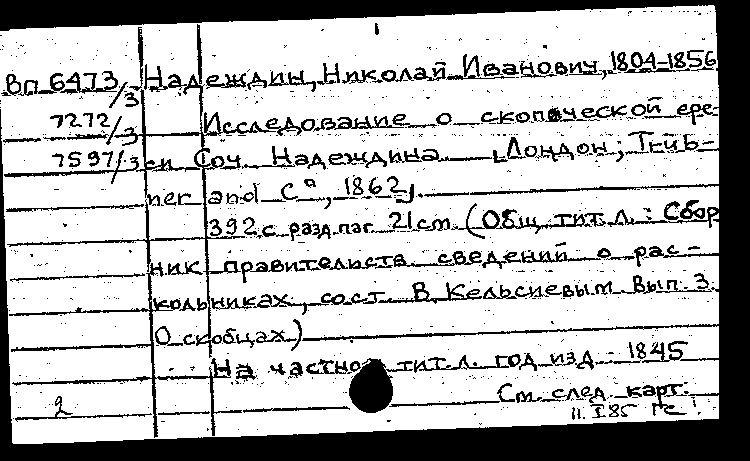 Вп 6473/3 Надеждин, Николай Иванович, 1804-1856
7272/3 Исследование о скопческой ере-
7597/3 си Соч. Надеждина [Лондон; Trüb-
ner and C°, 1862].
392 с. разд. паг. 21 см. (Общ. тит. л.: Сбор
ник правительств. сведений о рас-
кольниках, сост. В. Кельсиевым. Вып. 3.
О скобцах)
На частном тит. л. год изд. - 1845
См. след. карт.
2 11.I.85